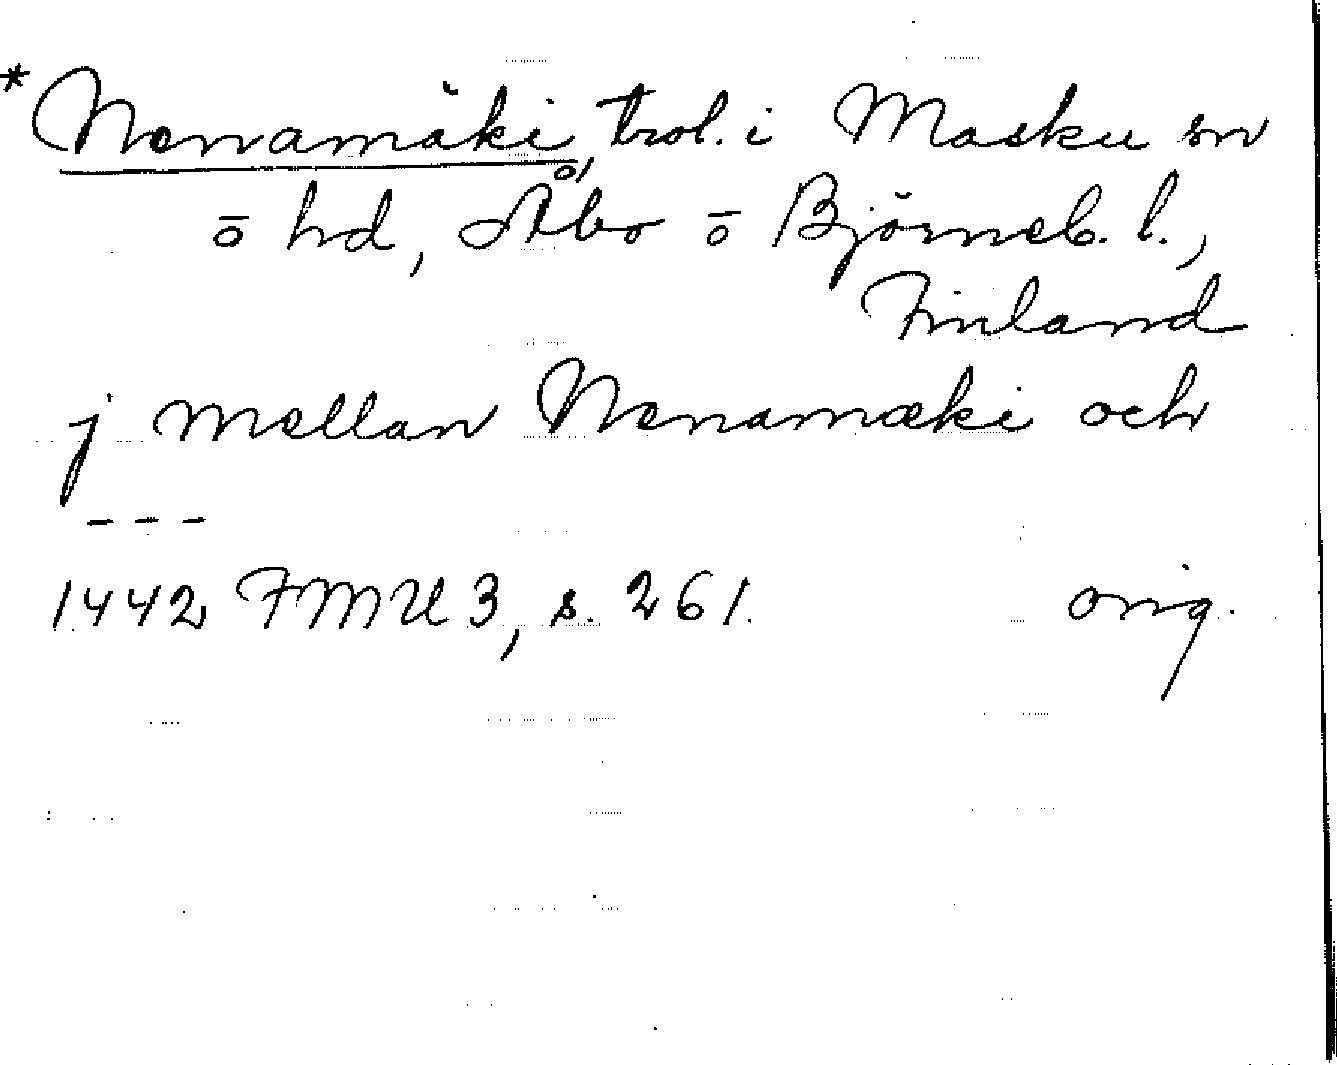 *Nenamäki, trol. i Masku sn
ō hd, Åbo ō Björneb. l.,
Finland
j mellan Nenamæki och
- - -
1442 FMU 3, s. 261. orig.